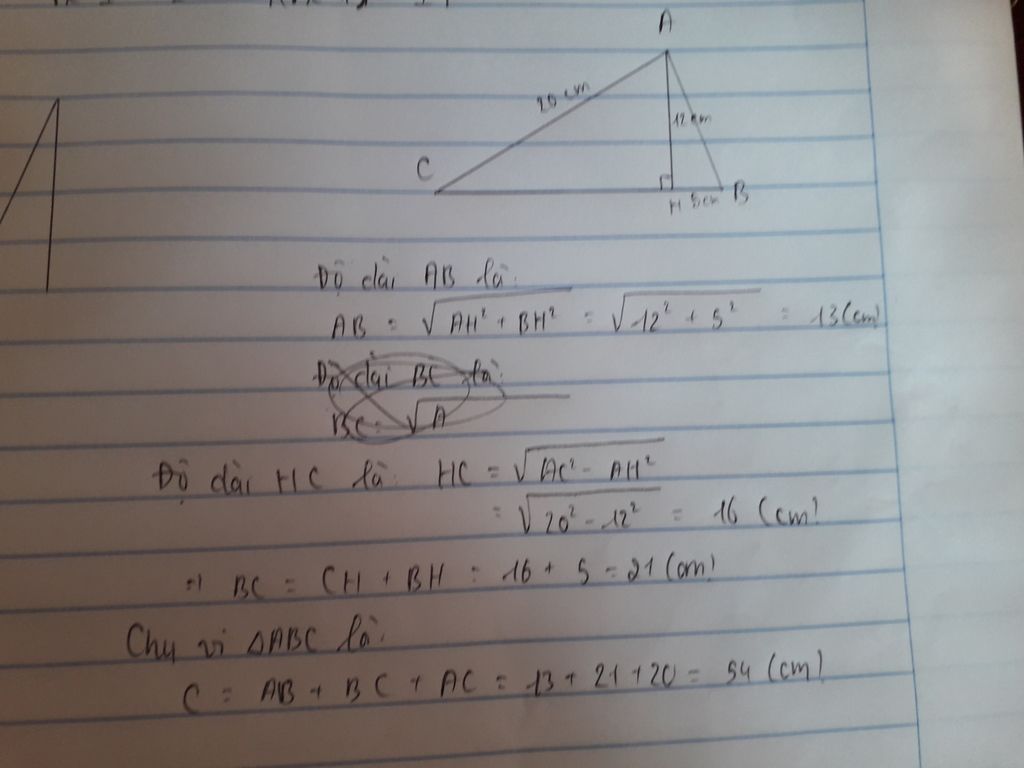 A
20 cm
12 cm
C
H 5cm B
Độ dài AB là:
AB = √AH² + BH² = √12² + 5² = 13 (cm)
Độ dài BC là:
BC = √A
Độ dài HC là: HC = √AC² - AH²
= √20² - 12² = 16 (cm)
=> BC = CH + BH = 16 + 5 = 21 (cm)
Chu vi ΔABC là:
C = AB + BC + AC = 13 + 21 + 20 = 54 (cm)